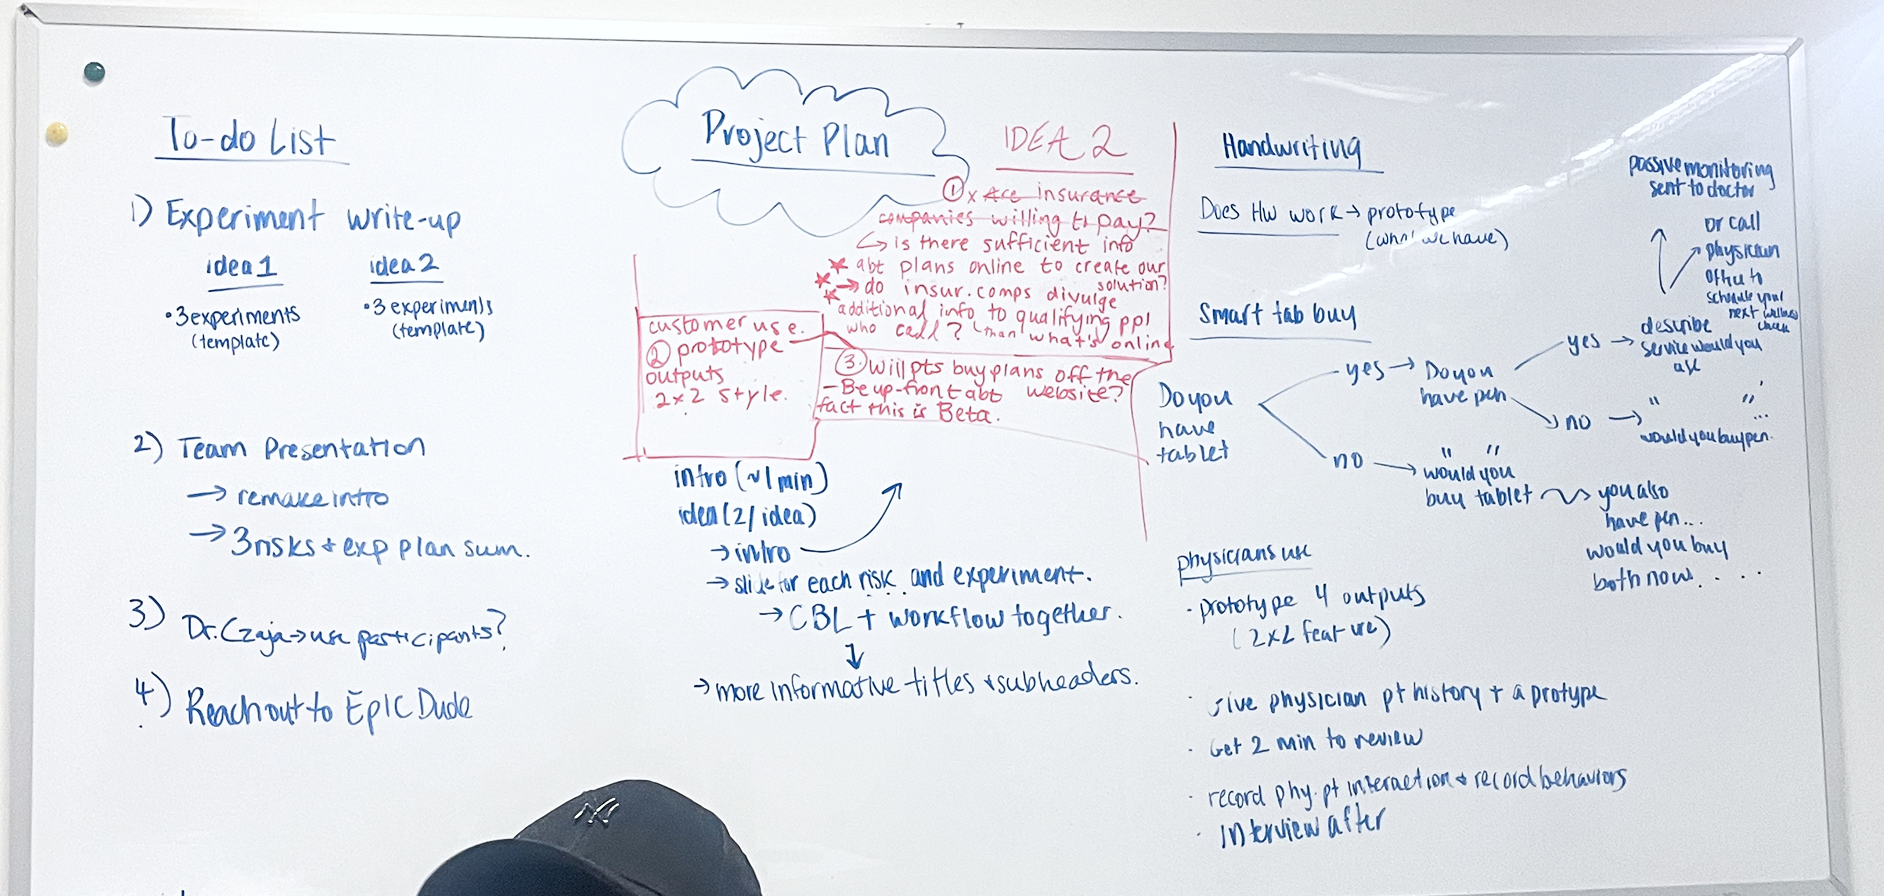 To-do List
1) Experiment write-up
idea 1
• 3 experiments
(template)
idea 2
• 3 experiments
(template)
2) Team Presentation
→ remake intro
→ 3 risks + exp plan sum.
3) Dr. Czaja → use participants?
4) Reach out to Epic Dude
Project Plan
IDEA 2
① x Are insurance
companies willing to pay?
↳ is there sufficient info
* abt plans online to create our
solution?
* → do insur. comps divulge
* additional info to qualifying ppl
who call? than what's online
customer use.
② prototype
outputs
2x2 style.
③ Will pts buy plans off the
website?
- Be up-front abt
fact this is Beta.
intro (~1 min)
idea (2/idea)
→ intro
→ slide for each risk and experiment.
→ CBL + workflow together.
↓
→ more informative titles + subheaders.
Handwriting
Does HW work → prototype
(what we have)
Smart tab buy
Do you
have
tablet
yes → Do you
have pen
yes → describe
service would you
use
passive monitoring
sent to doctor
or call
physician
office to
schedule your
next wellness
check
no → " "
...
would you buy pen.
no → " "
would you
buy tablet
you also
have pen...
would you buy
both now....
physicians use
• prototype 4 outputs
(2x2 feature)
• give physician pt history + a protype
• Get 2 min to review
• record phy. pt interaction + record behaviors
• interview after
NY